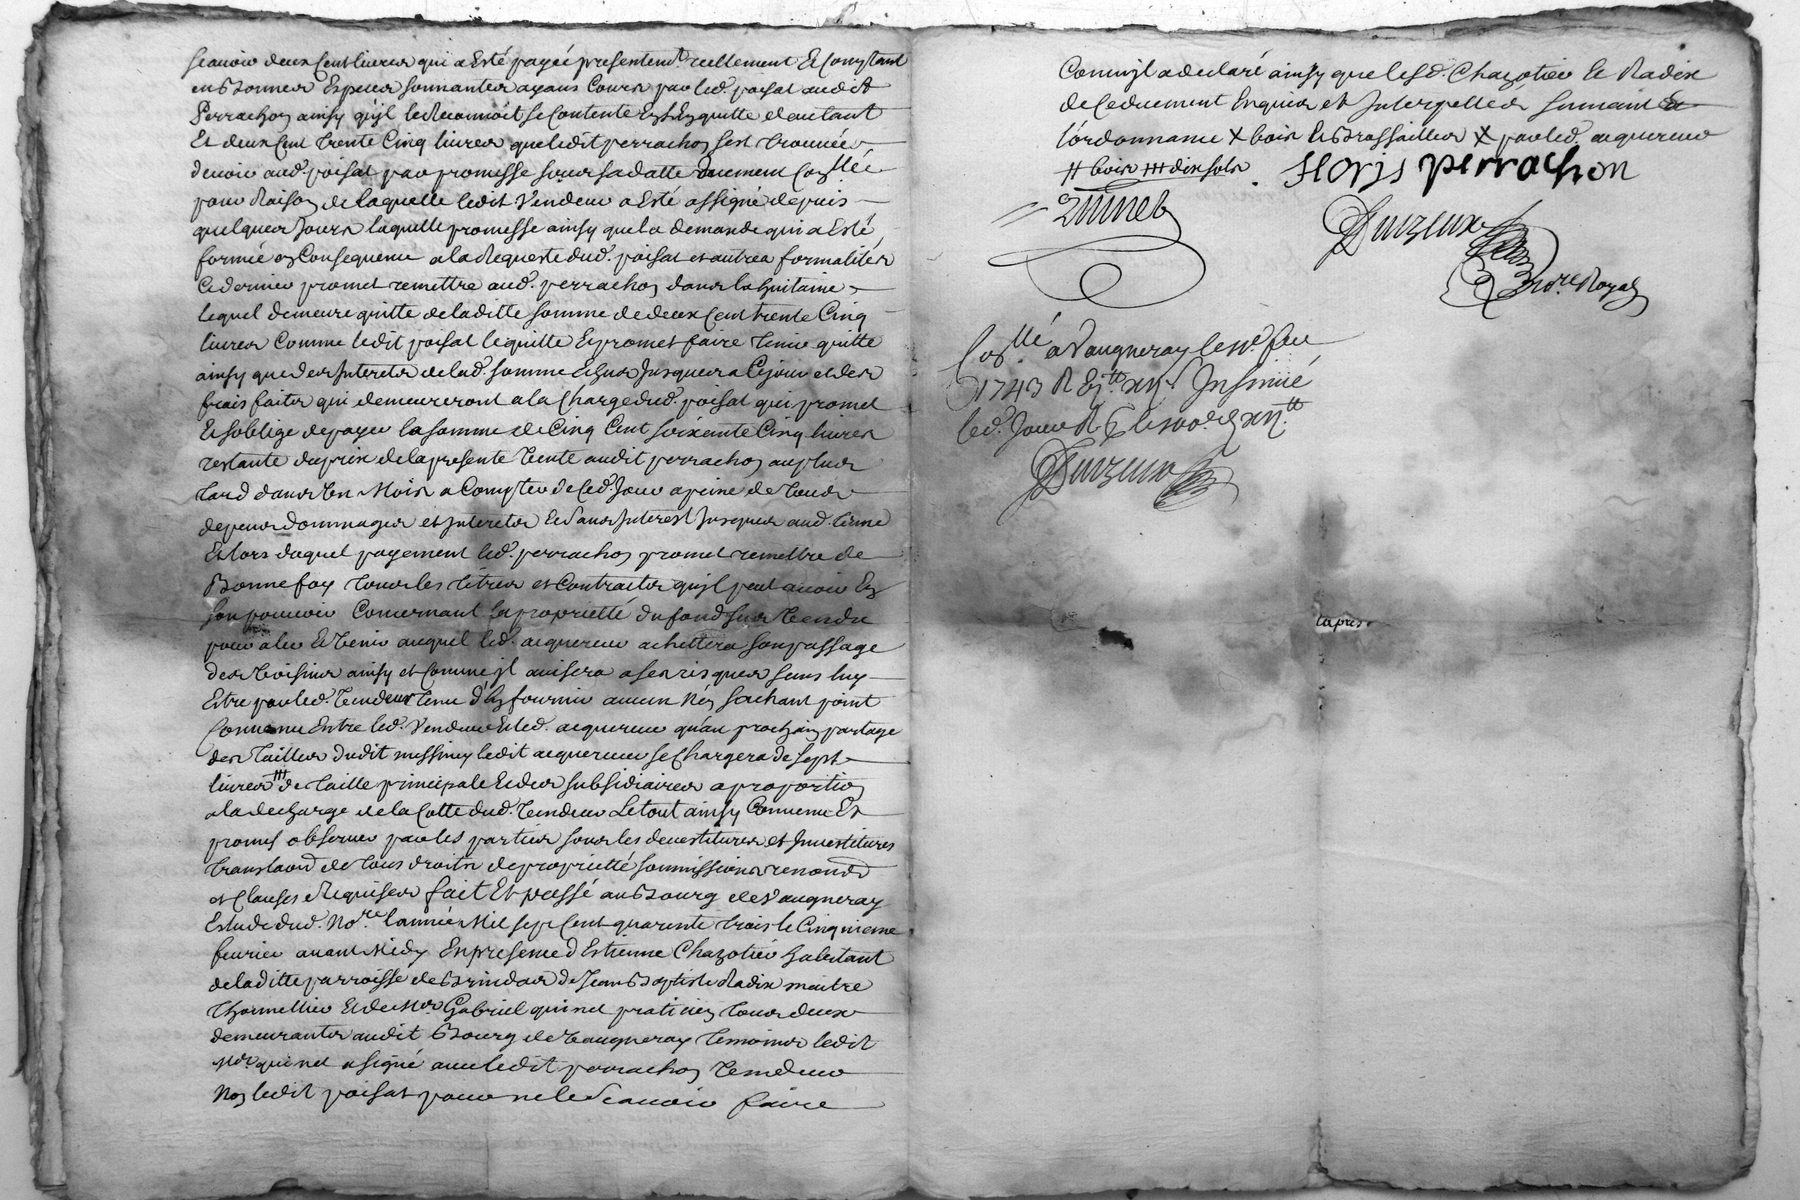 scavoir deux Cent livres qui a Esté payée presentemt. reellement Et Comptant
en Bonnes Especes sonnantes ayans Cours par led. poisat audit
Perrachon ainsy qu'jl le Reconnoit se Contente Et En quitte d'autant
Et deux Cent trente Cinq livres que ledit perrachon sest trouvée
devoir aud. poisat par promesse sous sa datte duement Conllée
pour Raison de laquelle ledit Vendeur a Esté assigné depuis
quelques Jours laquelle promesse ainsy que la demande qui a Esté
formée en Consequence a la Requeste dud. poisat et autres formalités
Ce dernier promet remettre aud. perrachon dans la huitaine
lequel demeure quitte de laditte somme de deux Cent trente Cinq
livres Comme ledit poisat le quitte Et promet faire tenir quitte
ainsy que des Interets de lad. somme Echus Jusques a Ce jour et des
frais faits qui demeureront a la Charge dud. poisat qui promet
Et soblige de payer la somme de Cinq Cent soixante Cinq livres
restante du prix de la presente Vente audit perrachon au plus
tard dans Un Mois a Compter de Ced. Jour a peine de tous
depens dommages et Interets Et sans Interest Jusques aud. terme
Et lors duquel payement led. perrachon promet remettre de
Bonne foy tous les titres et Contracts qu'jl peut avoir En
son pouvoir Concernant la proprietté du fond sus Vendu
pour aler Et Venir auquel led. acquereur achettera son passage
des Voisins ainsy et Comme jl avisera a ses risques sans luy
Estre par led. Vendeur tenu d'En fournir aucun N'en sachant point
Convenu Entre led. Vendeur Et led. acquereur qu'au prochain partage
des tailles dudit messimy ledit acquereur se Chargera de sept
livres ### de taille principale Et des subsidiaires a proportion
a la decharge de la Cotte dud. Vendeur Le tout ainsy Convenu Et
promis observer par les parties sous les devestitures et Investitures
translaond de tous droits de proprietté soumissions renonds
et Clauses Requises fait Et passé au Bourg de Vaugneray
Estude dud. Nore. l'année Mil sept Cent quarante trois le Cinquieme
fevrier avant Midy En presence d'Estienne Chazotier habitant
de laditte parroisse de Brindas de Jean Baptiste Radix maitre
Et de Mer Gabriel quinet praticien tous deux
demeurants audit Bourg de Vaugneray temoins ledit
Mer quinet a signé avec ledit perrachon Vendeur
Non ledit poisat pour ne le Scavoir faire
Comm jl a declaré ainsy que lesd. Chazotier Et Radix
de Ce duement Enquis et Interpellés suivant
l'ordonnance X bois Et Brossailles X par led. acquereur
# bois ### dix sols
Floris perrachon
Quinet
Duizeux
Nore Royal
Conllé a Vaugneray le 5e. feu
1743 R Insinué
led. Jour R
Duizeux